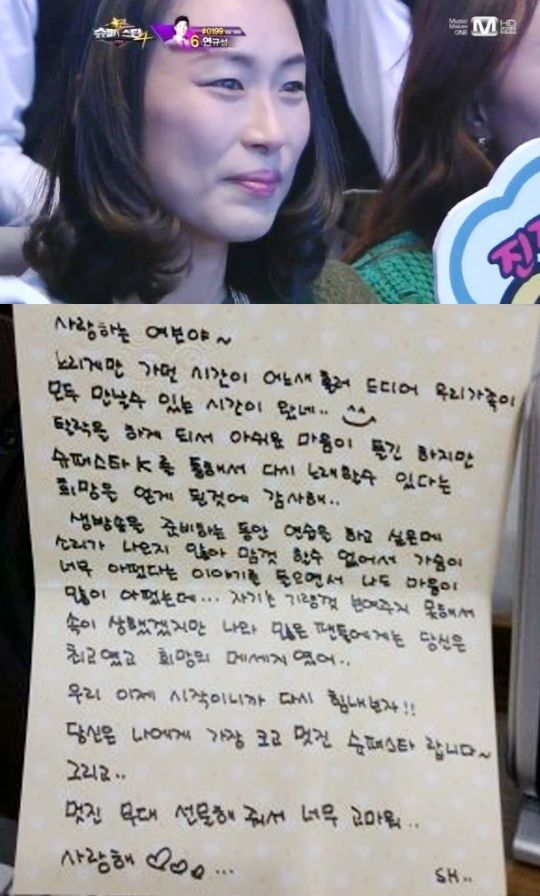 슈퍼스타K4
#0199
6 연규성
MUSIC MAKES ONE
M HD
진
사랑하는 여분야~
느리게만 가던 시간이 어느새 흘러 드디어 우리가족이
모두 만날수 있는 시간이 왔네.. ^^
탈락을 하게 되서 아쉬운 마음이 들긴 하지만
슈퍼스타K를 통해서 다시 노래할수 있다는
희망을 얻게 된것에 감사해..
생방송을 준비하는 동안 연습을 하고 싶은데
소리가 나오지 않아 맘껏 할수 없어서 가슴이
너무 아팠다는 이야기를 들으면서 나도 마음이
많이 아팠는데... 자기는 기량껏 보여주지 못해서
속이 상했겠지만 나와 많은 팬들에게는 당신은
최고였고 희망의 메세지였어..
우리 이제 시작이니까 다시 힘내보자!!
당신은 나에게 가장 크고 멋진 슈퍼스타 랍니다~
그리고..
멋진 무대 선물해 줘서 너무 고마워..
사랑해 ♡♡♡...
SH..